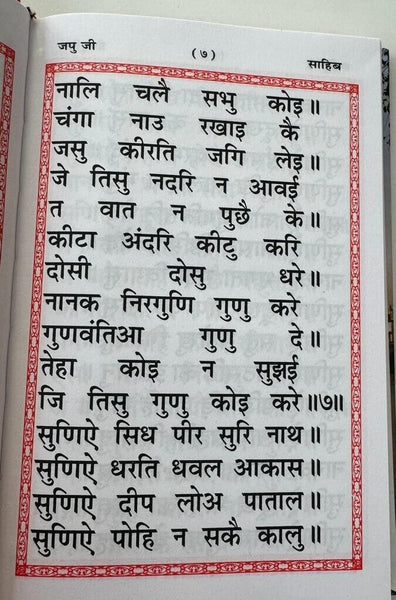 जपु जी
(७)
साहिब
नालि चलै सभु कोइ॥
चंगा नाउ रखाइ कै
जसु कीरति जगि लेइ॥
जे तिसु नदरि न आवई
त वात न पुछै के॥
कीटा अंदरि कीटु करि
दोसी दोसु धरे॥
नानक निरगुणि गुणु करे
गुणवंतिआ गुणु दे॥
तेहा कोइ न सुझई
जि तिसु गुणु कोइ करे॥७॥
सुणिऐ सिध पीर सुरि नाथ॥
सुणिऐ धरति धवल आकास॥
सुणिऐ दीप लोअ पाताल॥
सुणिऐ पोहि न सकै कालु॥